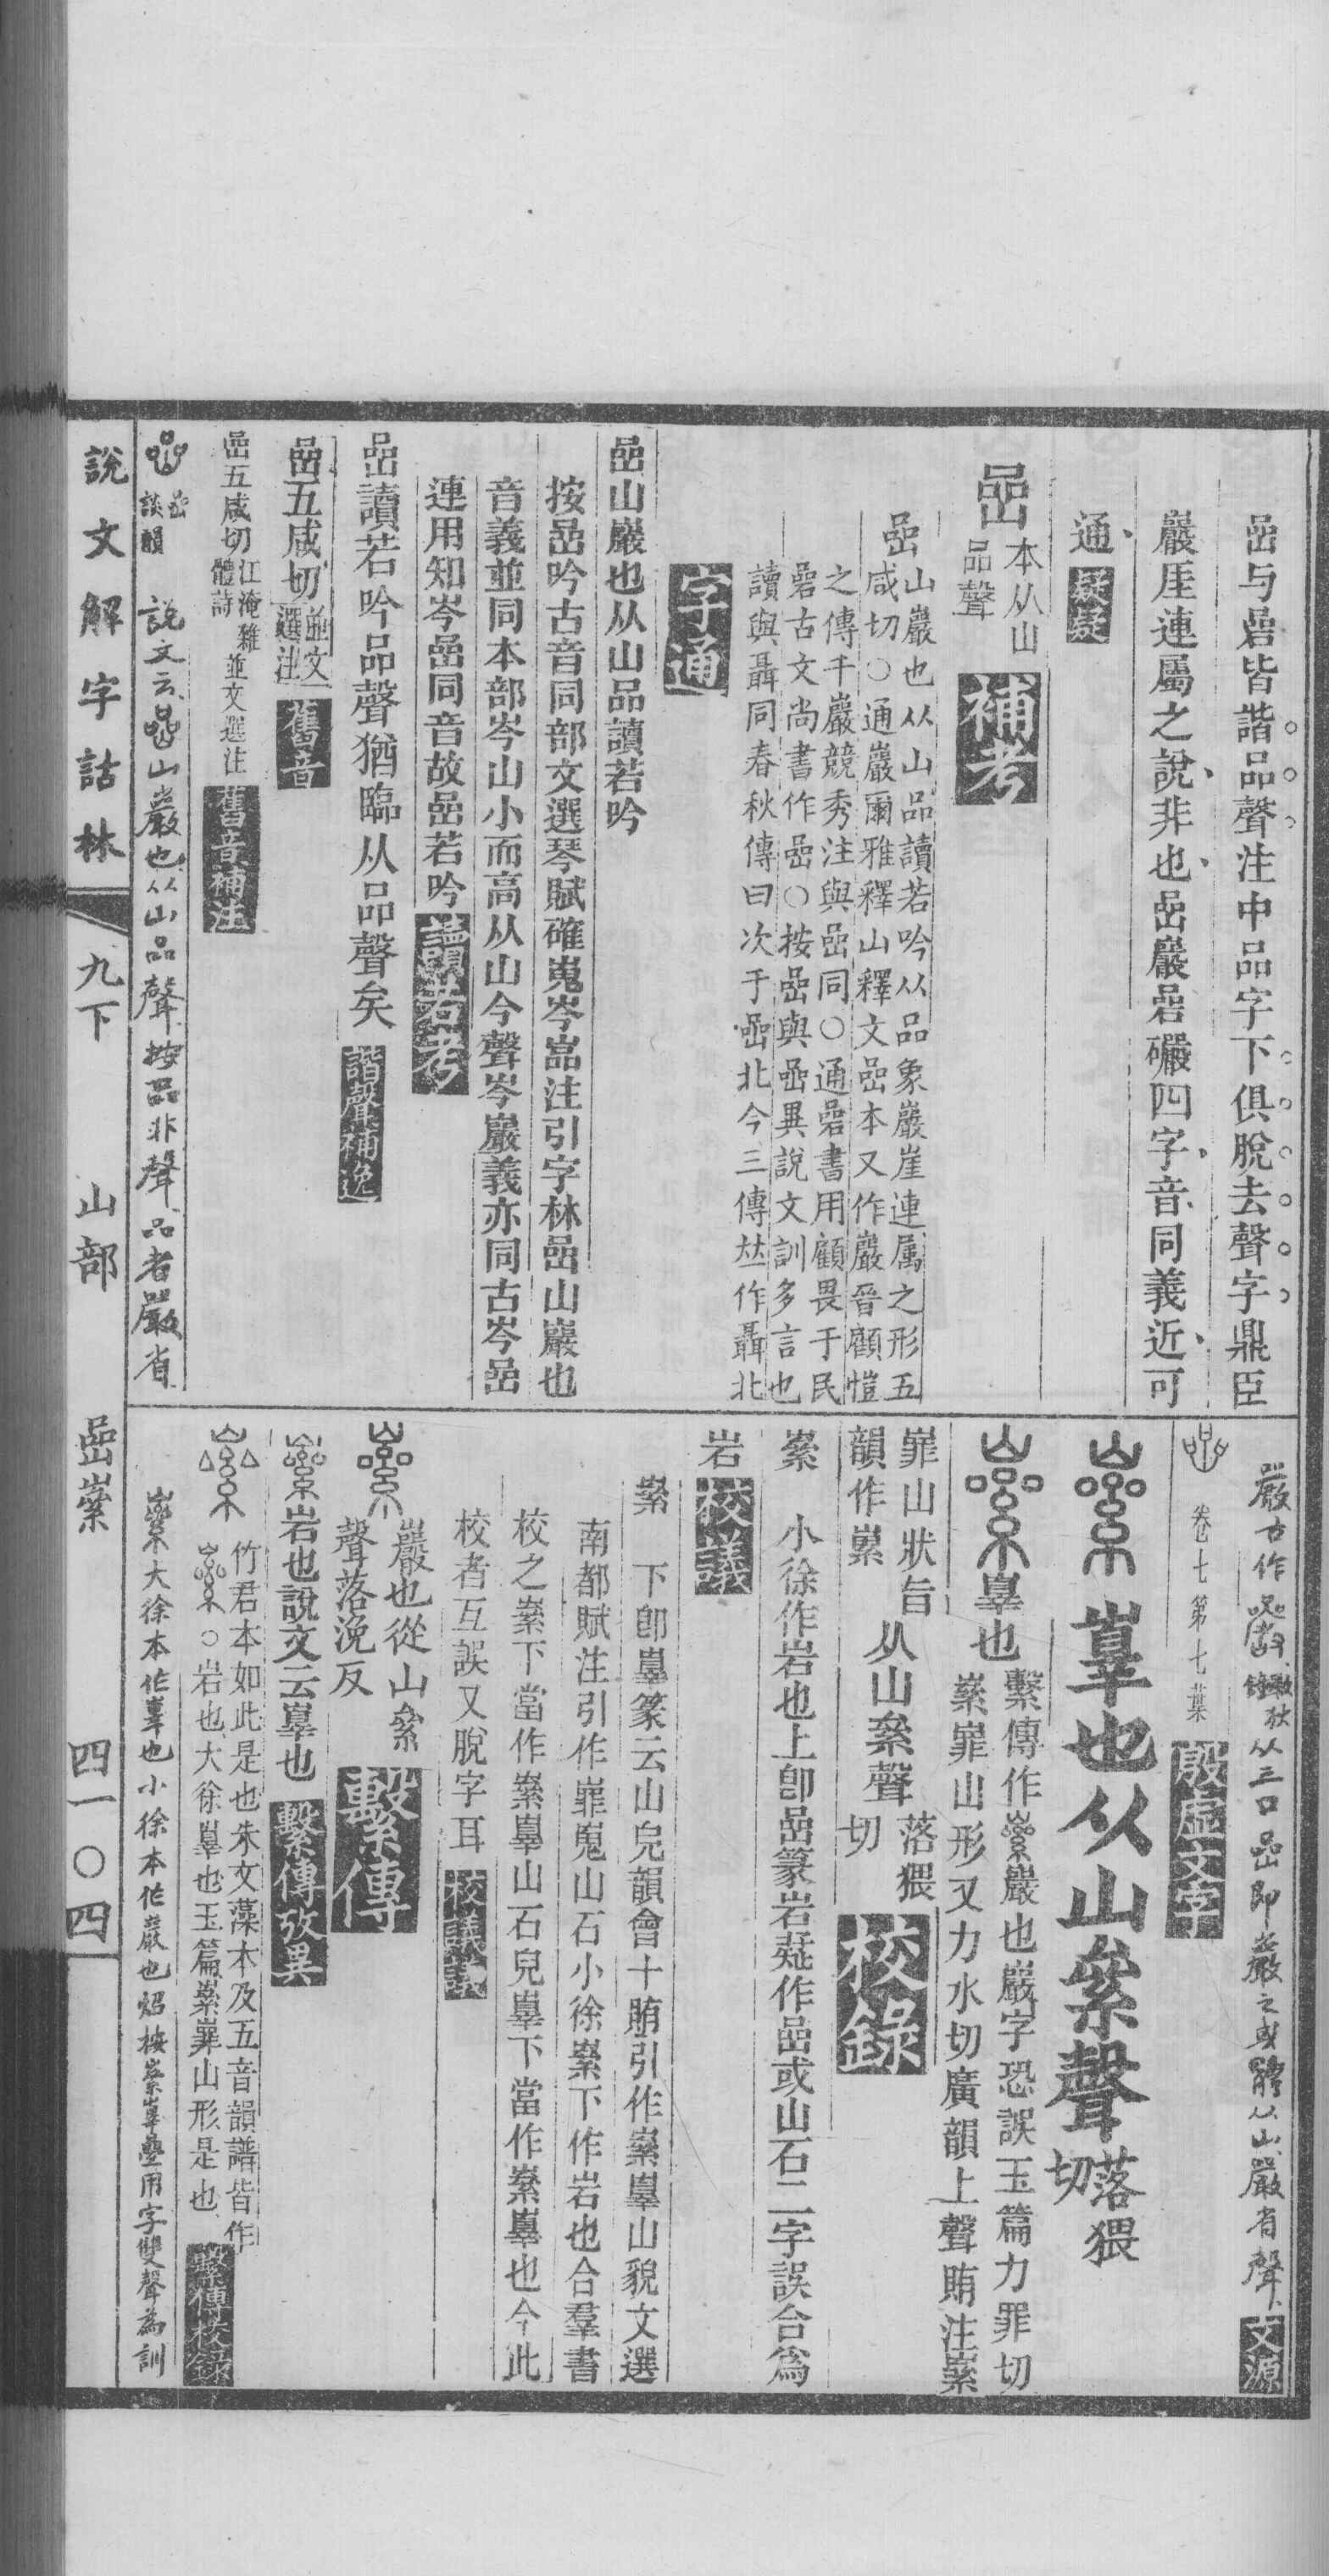 嵒与碞皆諧品聲注中品字下俱脫去聲字鼎臣
嚴厓連屬之說非也嵒巖碞礹四字音同義近可
通
疑疑
嵒
本从山
品聲
補考
嵒
山巖也从山品讀若吟从品象巖崖連属之形五
咸切○通巖爾雅釋山釋文嵒本又作巖晉顧愷
之傳千巖競秀注與嵒同○通碞書用顧畏于民
碞古文尚書作嵒○按嵒與嵒異說文訓多言也
讀與聶同春秋傳曰次于嵒北今三傳𠀤作聶北
字通
嵒山巖也从山品讀若吟
按嵒吟古音同部文選琴賦確嵬岑嵓注引字林嵒山巖也
音義並同本部岑山小而高从山今聲岑巖義亦同古岑嵒
連用知岑嵒同音故嵒若吟
讀若考
嵒讀若吟品聲猶臨从品聲矣
諧聲補逸
嵒五咸切
並文
選注
舊音
嵒五咸切
江淹雜
體詩
並文選注
舊音補注
嵒
談韻
說文云嵒山巖也从山品聲按品非聲品者嚴省
嚴古作
从三口嵒即巖之或體从山嚴省聲
文源
卷七第七葉
殷虛文字
辠也从山絫聲
落猥
切
辠也
繫傳作嵾巖也巖字恐誤玉篇力罪切
嶵山形又力水切廣韻上聲賄注
嶵山狀旨
韻作㠥
从山絫聲
落猥
切
校錄
小徐作岩也上卽嵒篆岩疑作嵒或山石二字誤合爲
岩
校議
下卽辠篆云山皃韻會十賄引作山貌文選
南都賦注引作嶵嵬山石小徐下作岩也合羣書
校之下當作山石皃下當作也今此
校者互誤又脫字耳
校議議
巖也從山絫
聲落浼反
繫傳
岩也說文云辠也
繫傳攷異
竹君本如此是也朱文藻本及五音韻譜皆作
○岩也大徐辠也玉篇山形是也
繫傳校錄
大徐本作辠也小徐本作巖也炤按疊用字雙聲為訓
說文解字詁林
九下
山部
嵒
四一○四